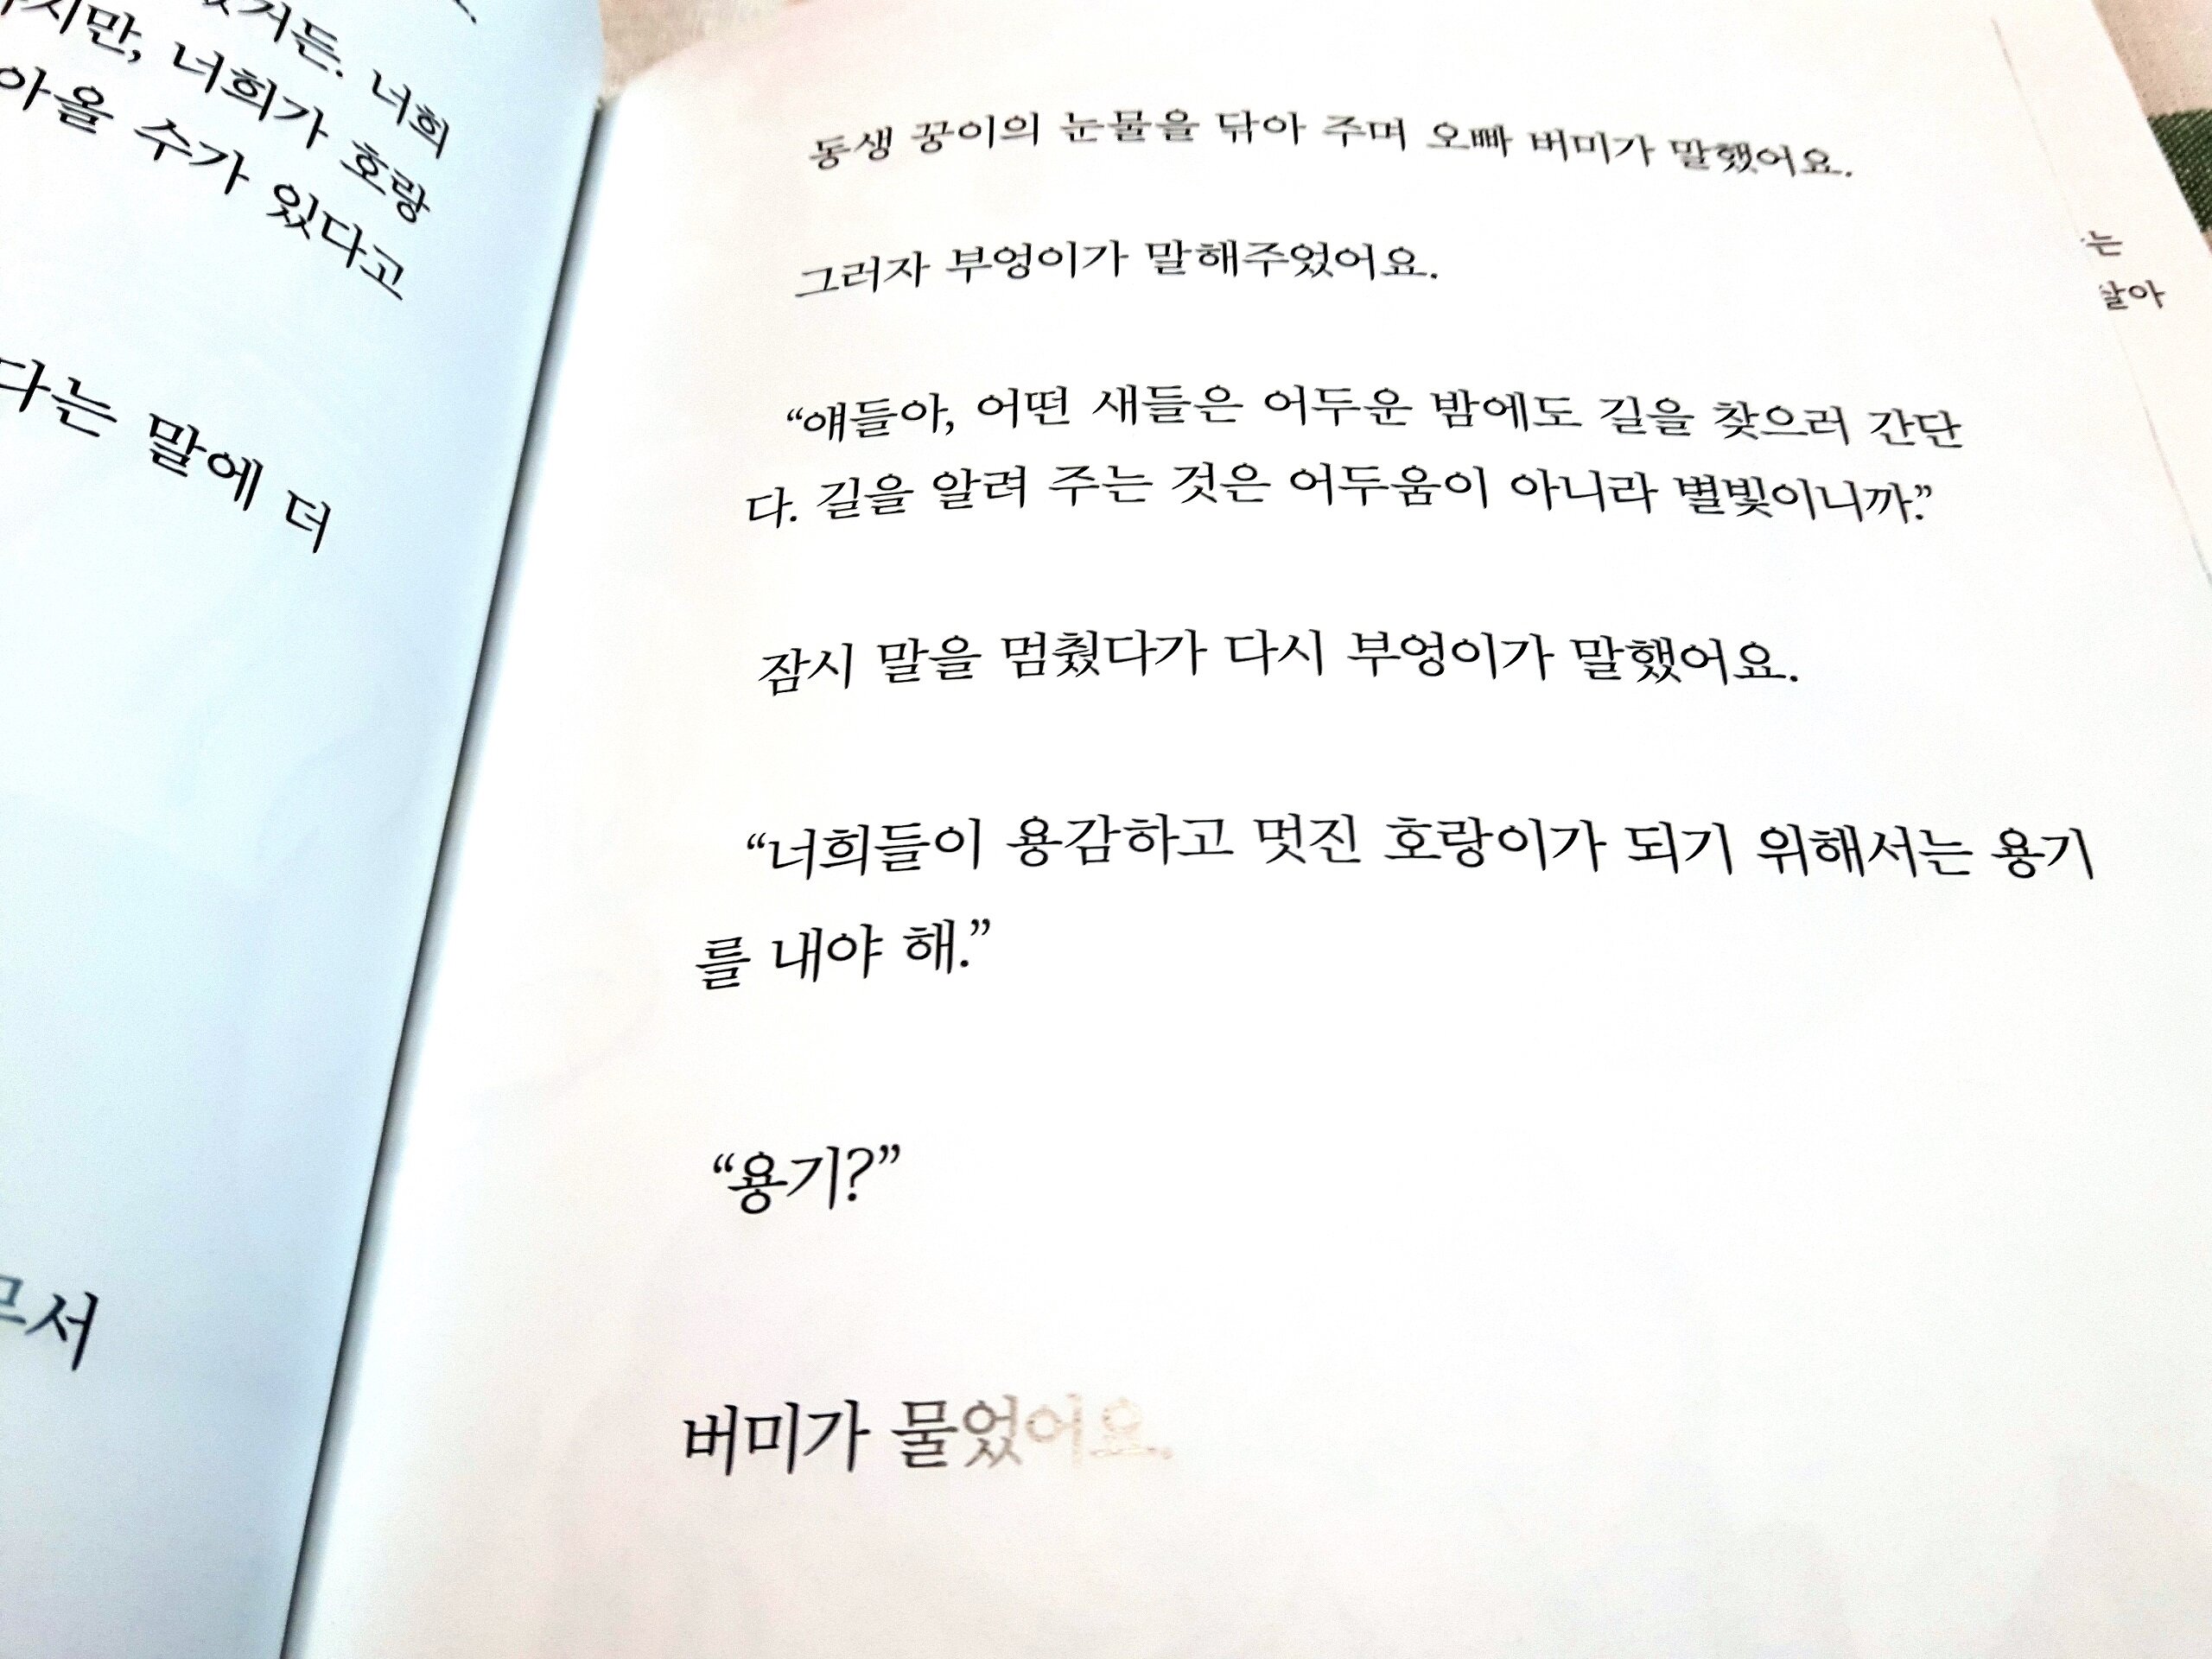 거든. 너희
지만, 너희가 호랑
아올 수가 있다고
다는 말에 더
서
동생 꿍이의 눈물을 닦아 주며 오빠 버미가 말했어요.
그러자 부엉이가 말해주었어요.
“얘들아, 어떤 새들은 어두운 밤에도 길을 찾으러 간단
다. 길을 알려 주는 것은 어두움이 아니라 별빛이니까.”
잠시 말을 멈췄다가 다시 부엉이가 말했어요.
“너희들이 용감하고 멋진 호랑이가 되기 위해서는 용기
를 내야 해.”
“용기?”
버미가 물었어요.
는